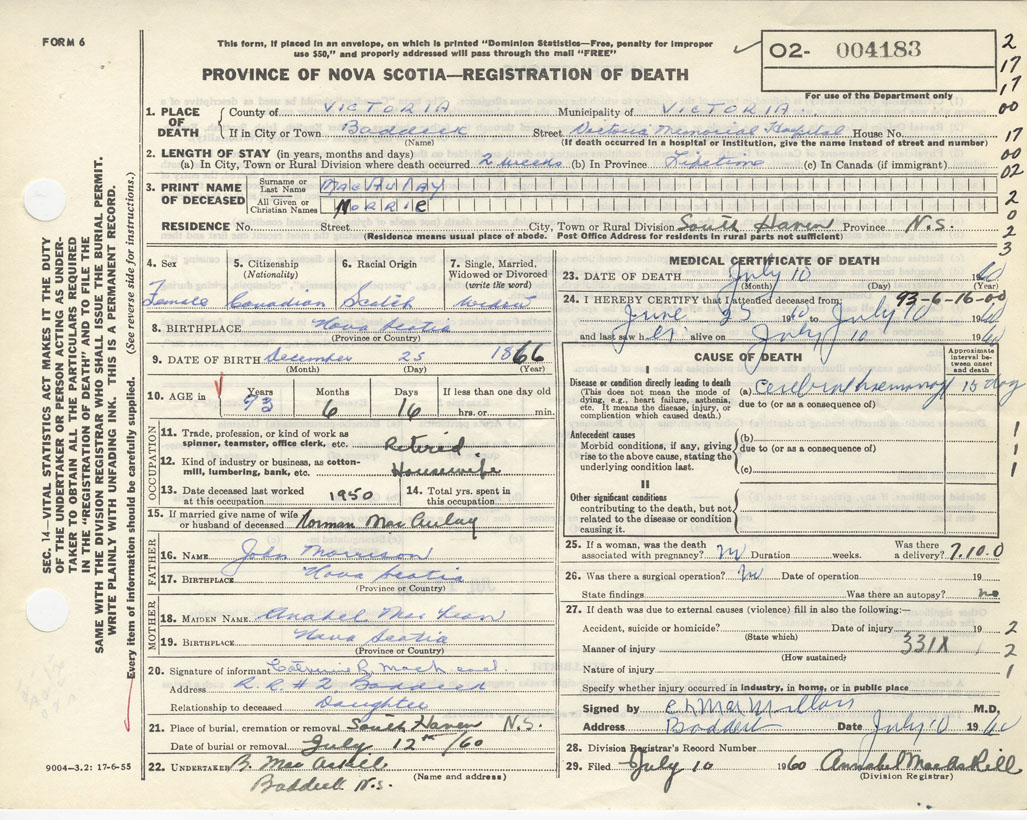 FORM 6
This form, if placed in an envelope, on which is printed "Dominion Statistics—Free, penalty for improper
use $50," and properly addressed will pass through the mail "FREE"
PROVINCE OF NOVA SCOTIA—REGISTRATION OF DEATH
O2- 004183
For use of the Department only
2
17
17
00
17
00
02
2
0
2
3
SEC. 14—VITAL STATISTICS ACT MAKES IT THE DUTY
OF THE UNDERTAKER OR PERSON ACTING AS UNDER-
TAKER TO OBTAIN ALL THE PARTICULARS REQUIRED
IN THE "REGISTRATION OF DEATH" AND TO FILE THE
SAME WITH THE DIVISION REGISTRAR WHO SHALL ISSUE THE BURIAL PERMIT.
WRITE PLAINLY WITH UNFADING INK. THIS IS A PERMANENT RECORD.
Every item of information should be carefully supplied. (See reverse side for instructions.)
1. PLACE OF DEATH County of VICTORIA Municipality of VICTORIA
If in City or Town Baddeck Street Victoria Memorial Hospital House No.
(Name) (If death occurred in a hospital or institution, give the name instead of street and number)
2. LENGTH OF STAY (in years, months and days)
(a) In City, Town or Rural Division where death occurred 2 weeks (b) In Province Lifetime (c) In Canada (if immigrant)
3. PRINT NAME OF DECEASED Surname or Last Name MacAulay
All Given or Christian Names MORRIE
RESIDENCE No. Street City, Town or Rural Division South Haven Province N.S.
(Residence means usual place of abode. Post Office Address for residents in rural parts not sufficient)
4. Sex 5. Citizenship (Nationality) 6. Racial Origin 7. Single, Married, Widowed or Divorced (write the word)
Female Canadian Scotch Widow
8. BIRTHPLACE Nova Scotia
(Province or Country)
9. DATE OF BIRTH December 25 1866
(Month) (Day) (Year)
10. AGE in Years Months Days If less than one day old
93 6 16 hrs. or min.
OCCUPATION
11. Trade, profession, or kind of work as spinner, teamster, office clerk, etc. Retired
12. Kind of industry or business, as cotton-mill, lumbering, bank, etc. Housewife
13. Date deceased last worked at this occupation 1950 14. Total yrs. spent in this occupation
15. If married give name of wife or husband of deceased Norman MacAulay
FATHER
16. NAME John Morrison
17. BIRTHPLACE Nova Scotia
(Province or Country)
MOTHER
18. MAIDEN NAME Annabel MacLean
19. BIRTHPLACE Nova Scotia
(Province or Country)
20. Signature of informant Catherine
Address R.R. #2 Baddeck
Relationship to deceased Daughter
21. Place of burial, cremation or removal South Haven N.S.
Date of burial or removal July 12th /60
22. UNDERTAKER R. MacAskill
(Name and address)
Baddeck N.S.
9004—3.2: 17-6-55
MEDICAL CERTIFICATE OF DEATH
23. DATE OF DEATH July 10 1960
(Month) (Day) (Year)
24. I HEREBY CERTIFY that I attended deceased from: 93-6-16-00
June 25 1960 to July 10 1960
and last saw her alive on July 10 1960
CAUSE OF DEATH
Approximate interval between onset and death
I
Disease or condition directly leading to death
(This does not mean the mode of dying, e.g., heart failure, asthenia, etc. It means the disease, injury, or complication which caused death.)
(a) Cerebral haemorrhage 15 days
due to (or as a consequence of)
Antecedent causes
Morbid conditions, if any, giving rise to the above cause, stating the underlying condition last.
(b)
due to (or as a consequence of)
(c)
1
1
1
II
Other significant conditions
contributing to the death, but not related to the disease or condition causing it.
25. If a woman, was the death associated with pregnancy? no Duration weeks. Was there a delivery? 7.10.0
26. Was there a surgical operation? no Date of operation 19
State findings Was there an autopsy? no
27. If death was due to external causes (violence) fill in also the following:—
Accident, suicide or homicide? Date of injury 19 2
(State which)
Manner of injury 331X 1 2
(How sustained)
Nature of injury 1
Specify whether injury occurred in industry, in home, or in public place
Signed by C L MacMillan M.D.
Address Baddeck Date July 10 1960
28. Division Registrar's Record Number
29. Filed July 10 1960 Annabel MacAskill
(Division Registrar)